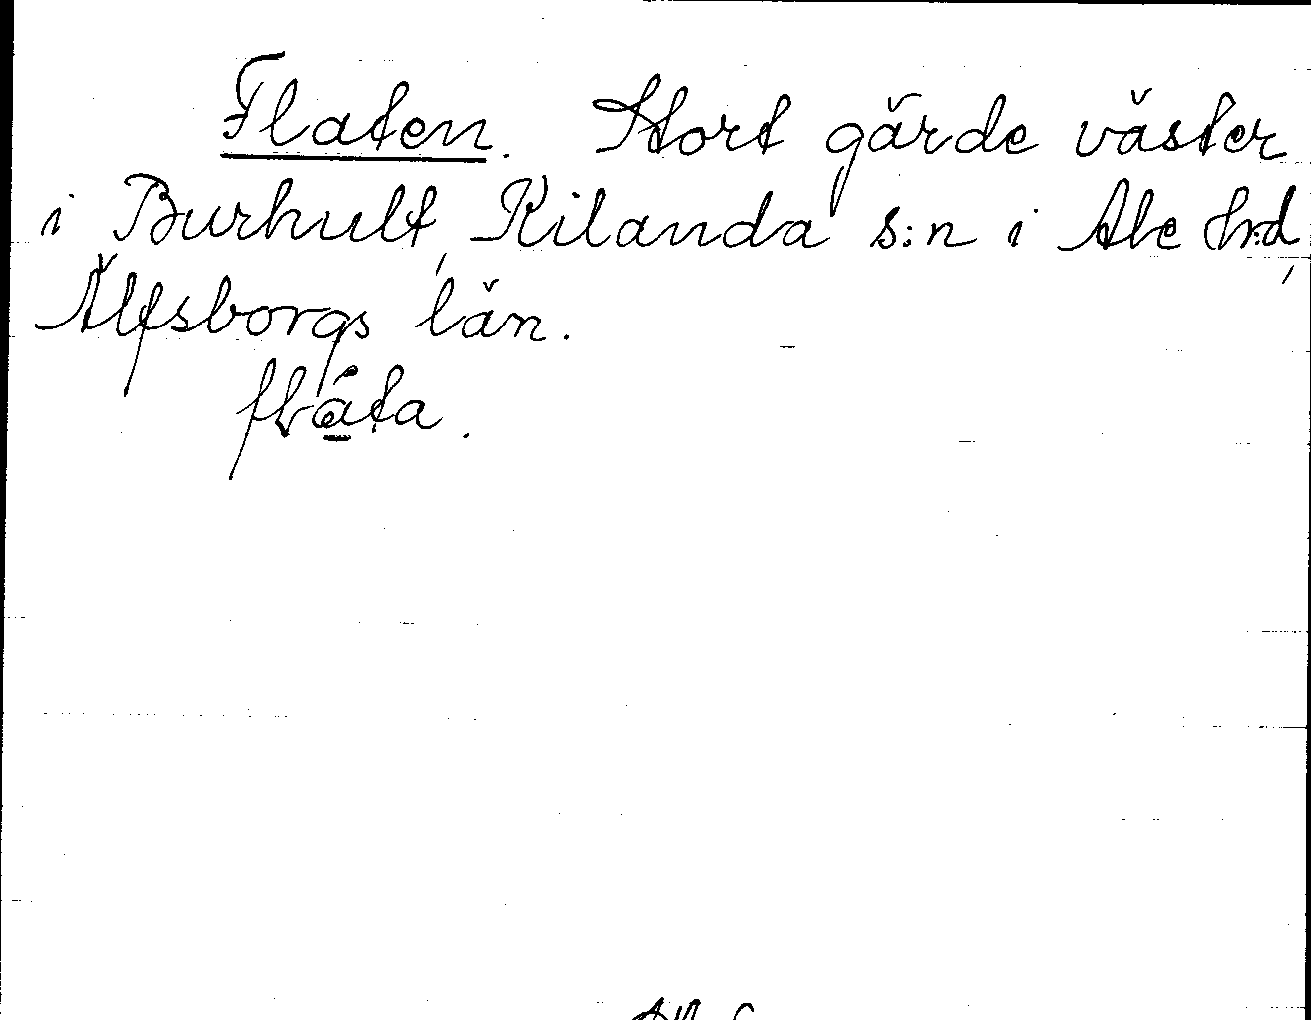 Flaten. Stort gärde väster
i Burhult, Kilanda s:n i Ale h:d,
Älfsborgs län.
flåta.